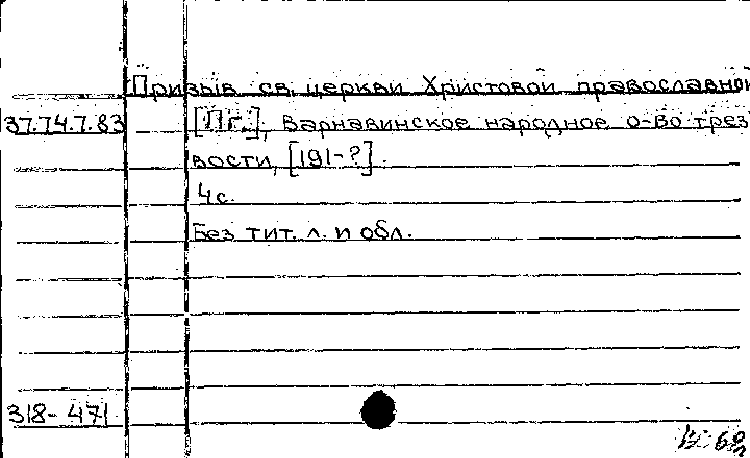 Призыв св. церкви Христовой православной
37.74.7.83 [Пг.], Варнавинское народное о-во трез
вости, [191-?].
4 с.
Без тит. л. и обл.
318-471